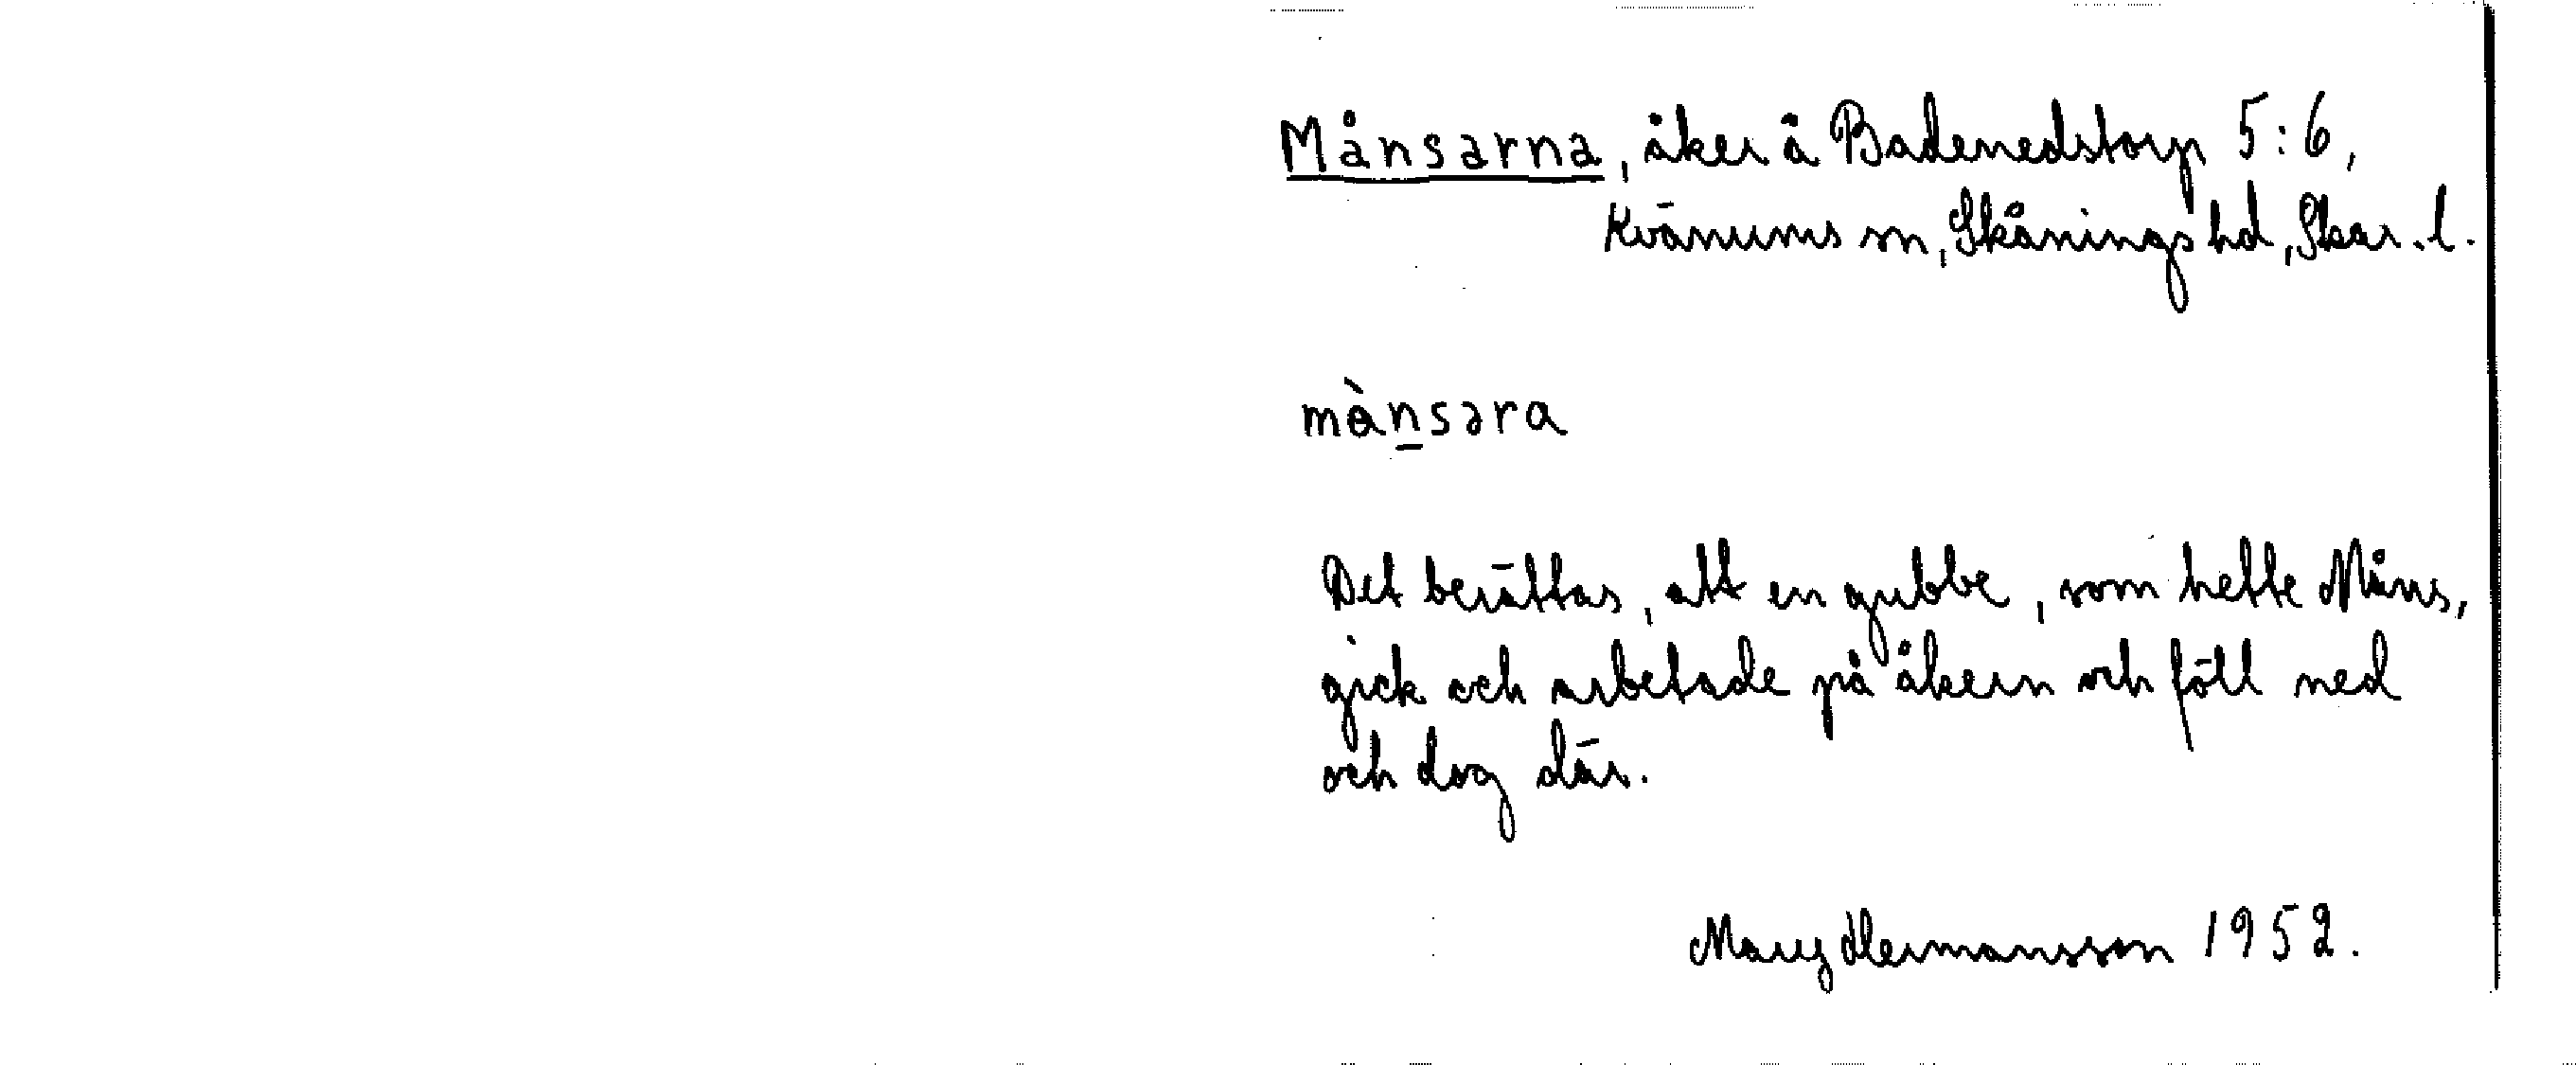 Månsarna, åker å Badenedstorp 5:6,
Kvänums sn, Skånings hd, Skar. l.
mànsəra
Det berättas, att en gubbe, som hette Måns,
gick och arbetade på åkern och föll ned
och dog där.
Mary Hermansson 1952.